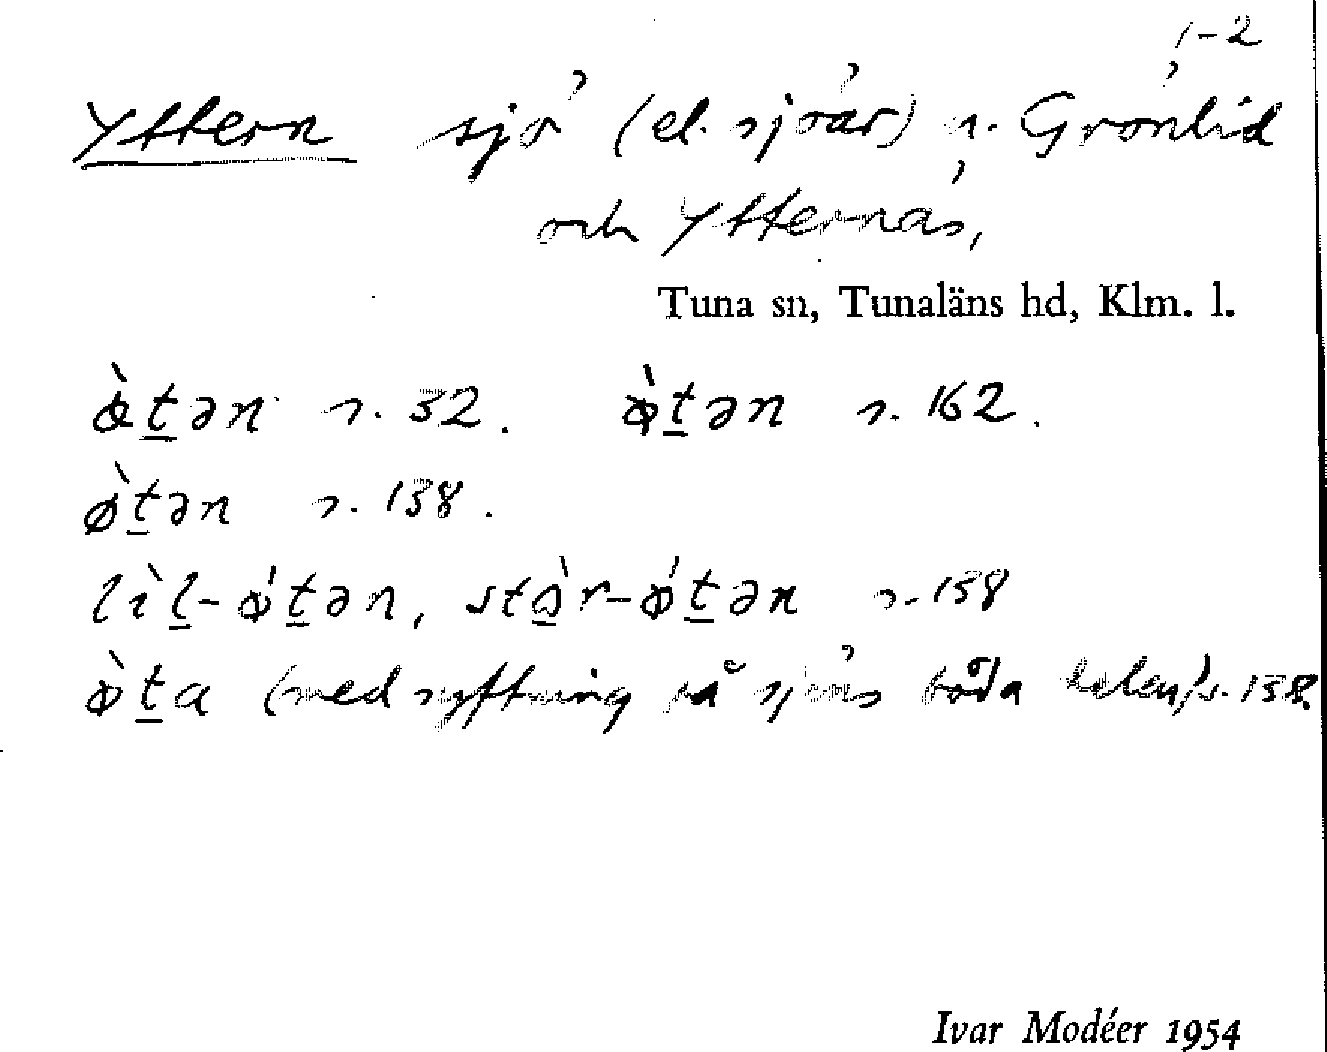 1-2
Yttern sjö (el. sjöar) s. Grönlid
och Ytternäs,
Tuna sn, Tunaläns hd, Klm. l.
ø̀t̠ən s. 32. ø̀t̠ən s. 162.
ø̀t̠ən s. 138.
lìl̠-ǿt̠ən, stò̠r-ǿt̠ən s. 138
ø̀t̠a (med syftning på sjöns båda delar) s. 138.
Ivar Modéer 1954